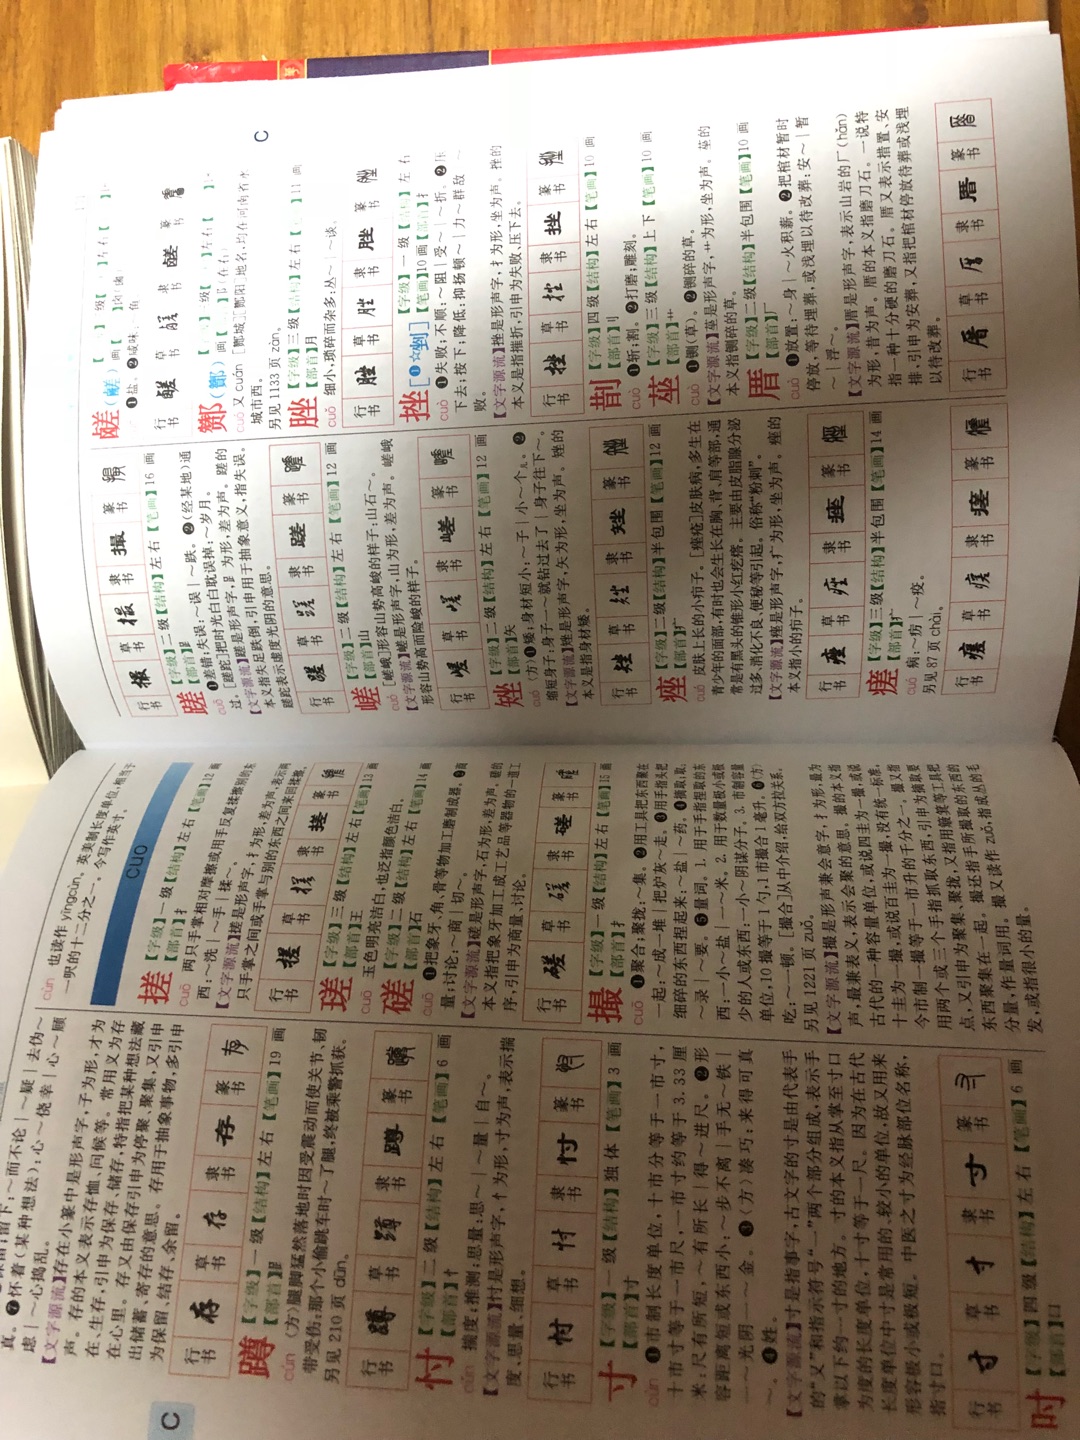 C
真。❼怀着(某种想法):心~侥幸｜心~顾
虑｜~心捣乱。
【文字源流】存在小篆中是形声字,子为形,才为
声。存的本义表示存恤、问候等。常用义为存
在、生存,引申为保存、储存,特指把某种想法藏
在心里。存又由保存引申为停聚、聚集,又引申
出储蓄、寄存的意思。存用于抽象事物,多引申
为保留、结存、余留。
行书 存 草书 存 隶书 存 篆书 存
蹲 【字级】一级【结构】左右【笔画】19 画
【部首】𧾷
cún (方)腿脚猛然落地时因受震动而使关节、韧
带受伤:那个小偷跳车时~了腿,终被乘警抓获。
另见 210 页 dūn。
行书 蹲 草书 蹲 隶书 蹲 篆书 蹲
忖 【字级】二级【结构】左右【笔画】6 画
【部首】忄
cǔn 揣度;推测;思量:思~｜~量｜自~。
【文字源流】忖是形声字,忄为形,寸为声,表示揣
度、思量、细想。
行书 忖 草书 忖 隶书 忖 篆书 忖
寸 【字级】一级【结构】独体【笔画】3 画
【部首】寸
cùn ❶市制长度单位,十市分等于一市寸,
十市寸等于一市尺、一市寸约等于 3.33 厘
米:尺有所短,~有所长｜得~进尺。❷形
容距离短或东西小:~步不离｜手无~铁｜
一~光阴一~金。❸(方)凑巧:来得可真
~。❹姓。
【文字源流】寸是指事字,古文字的寸是由代表手
的“又”和指示符号“一”两个部分组成,表示手
掌以下约一寸的地方。寸的本义指从掌至寸口
为度的长度单位,十寸等于一尺。因为在古代
长度单位中寸是常用的、较小的单位,故又用来
形容极小或极短。中医之寸为经脉部位名称,
指寸口。
行书 寸 草书 寸 隶书 寸 篆书 寸
吋 【字级】四级【结构】左右【笔画】6 画
【部首】口
cùn 也读作 yīngcùn,英美制长度单位,相当于
一呎的十二分之一。今写作英寸。
cuo
搓 【字级】一级【结构】左右【笔画】12 画
【部首】扌
cuō 两只手掌相对摩擦或用手反复揉搓别的东
西:~洗｜~手｜揉~。
【文字源流】搓是形声字,扌为形,差为声,表示两
只手掌之间或手掌与别的东西之间来回揉擦。
行书 搓 草书 搓 隶书 搓 篆书 搓
瑳 【字级】三级【结构】左右【笔画】13 画
【部首】王
cuō 玉色明亮洁白,也泛指颜色洁白。
磋 【字级】二级【结构】左右【笔画】14 画
【部首】石
cuō ❶把象牙、角、骨等物加工磨制成器。❷商
量;讨论:~商｜切~。
【文字源流】磋是形声字,石为形,差为声。磋的
本义指把象牙加工成工艺品等器物的一道工
序,引申为商量,讨论。
行书 磋 草书 磋 隶书 磋 篆书 磋
撮 【字级】一级【结构】左右【笔画】15 画
【部首】扌
cuō ❶聚合;聚拢:~集。❷用工具把东西聚在
一起:~成一堆｜把炉灰~走。❸用手指头把
细碎的东西捏起来:~盐｜~药。❹摘取;取:
~录｜~要。❺量词。1. 用于手指捏取的东
西:一小~盐｜一~米。2. 用于数量极小或极
少的人或东西:一小~阴谋分子。3. 市制容量
单位,10 撮等于 1 勺,1 市撮合 1 毫升。❻(方)
吃:~一顿。[撮合]从中介绍,给双方拉关系。
另见 1221 页 zuǒ。
【文字源流】撮是形声兼会意字,扌为形,最为
声,最兼表义,表示会聚的意思。撮的本义指
古代的一种容量单位,或说四圭为一撮,或说
十圭为一撮,或说百圭为一撮,没有统一标准。
今市制一撮等于一市升的千分之一。撮又指
用两个或三个手指抓取东西,引申为摘取要
点,又引申为聚集、聚拢,又指用簸箕等工具把
东西聚集在一起。撮还指手指所撮取的东西的
分量,作量词用。撮又读作 zuǒ,指成丛的毛
发,或指很小的量。
C
行书 撮 草书 撮 隶书 撮 篆书 撮
蹉 【字级】二级【结构】左右【笔画】16 画
【部首】𧾷
cuō ❶差错;失误:~误｜~跌。❷(经某地)通
过。[蹉跎]把时光白白耽误掉:~岁月。
【文字源流】蹉是形声字,𧾷为形,差为声。蹉的
本义指失足跌倒,引申用于抽象意义,指失误。
蹉跎表示虚度光阴的意思。
行书 蹉 草书 蹉 隶书 蹉 篆书 蹉
嵯 【字级】二级【结构】左右【笔画】12 画
【部首】山
cuó [嵯峨]形容山势高峻的样子:山石~。
【文字源流】嵯是形声字,山为形,差为声。嵯峨
形容山势高而险峻的样子。
行书 嵯 草书 嵯 隶书 嵯 篆书 嵯
矬 【字级】二级【结构】左右【笔画】12 画
【部首】矢
cuó (方)❶矮;身材短小:~子｜小~个儿。❷
缩短身子:身子一~就钻过去了｜身子往下~。
【文字源流】矬是形声字,矢为形,坐为声。矬的
本义是指身材矮。
行书 矬 草书 矬 隶书 矬 篆书 矬
痤 【字级】二级【结构】半包围【笔画】12 画
【部首】疒
cuó 皮肤上长的小疖子。[痤疮]皮肤病,多生在
青少年的面部,有时也会生长在胸、背、肩等部,通
常是有黑头的锥形小红疙瘩。主要由皮脂腺分泌
过多、消化不良、便秘等引起。俗称“粉刺”。
【文字源流】痤是形声字,疒为形,坐为声。痤的
本义指小的疖子。
行书 痤 草书 痤 隶书 痤 篆书 痤
瘥 【字级】三级【结构】半包围【笔画】14 画
【部首】疒
cuó 病:~疠｜~疫。
另见 87 页 chài。
行书 瘥 草书 瘥 隶书 瘥 篆书 瘥
鹾(鹺)
❶盐。❷咸味
行书 鹾 草书 鹾 隶书 鹾 篆书 鹾
酇(酂)
cuó 又 cuán [酇城][酇阳]地名,均在河南省永
城市西。
另见 1133 页 zàn。
脞 【字级】三级【结构】左右【笔画】11 画
【部首】月
cuǒ 细小,琐碎而杂多:丛~｜~谈。
行书 脞 草书 脞 隶书 脞 篆书 脞
挫 [❶☆剉] 【字级】一级【结构】左右
【笔画】10 画【部首】扌
cuò ❶失败;不顺:~阻｜受~｜~折。❷压
下去;按下;降低:抑扬顿~｜力~群敌
败。
【文字源流】挫是形声字,扌为形,坐为声。挫的
本义是指摧折,引申为失败、压下去。
行书 挫 草书 挫 隶书 挫 篆书 挫
剒 【字级】四级【结构】左右【笔画】10 画
【部首】刂
cuò ❶斩;割。❷打磨;雕刻。
莝 【字级】三级【结构】上下【笔画】10 画
【部首】艹
cuò ❶铡(草)。❷铡碎的草。
【文字源流】莝是形声字,艹为形,坐为声。莝的
本义指铡碎的草。
厝 【字级】二级【结构】半包围【笔画】10 画
【部首】厂
cuò ❶放置:~身｜~火积薪。❷把棺材暂时
停放,等待埋葬,或浅埋以待改葬:安~｜暂
~｜浮~。
【文字源流】厝是形声字,表示山岩的厂(hǎn)
为形,昔为声。厝的本义指磨刀石。一说特
指一种十分硬的磨刀石。厝又表示措置、安
排,引申为安葬,又指把棺材停放待葬或浅埋
以待改葬。
行书 厝 草书 厝 隶书 厝 篆书 厝